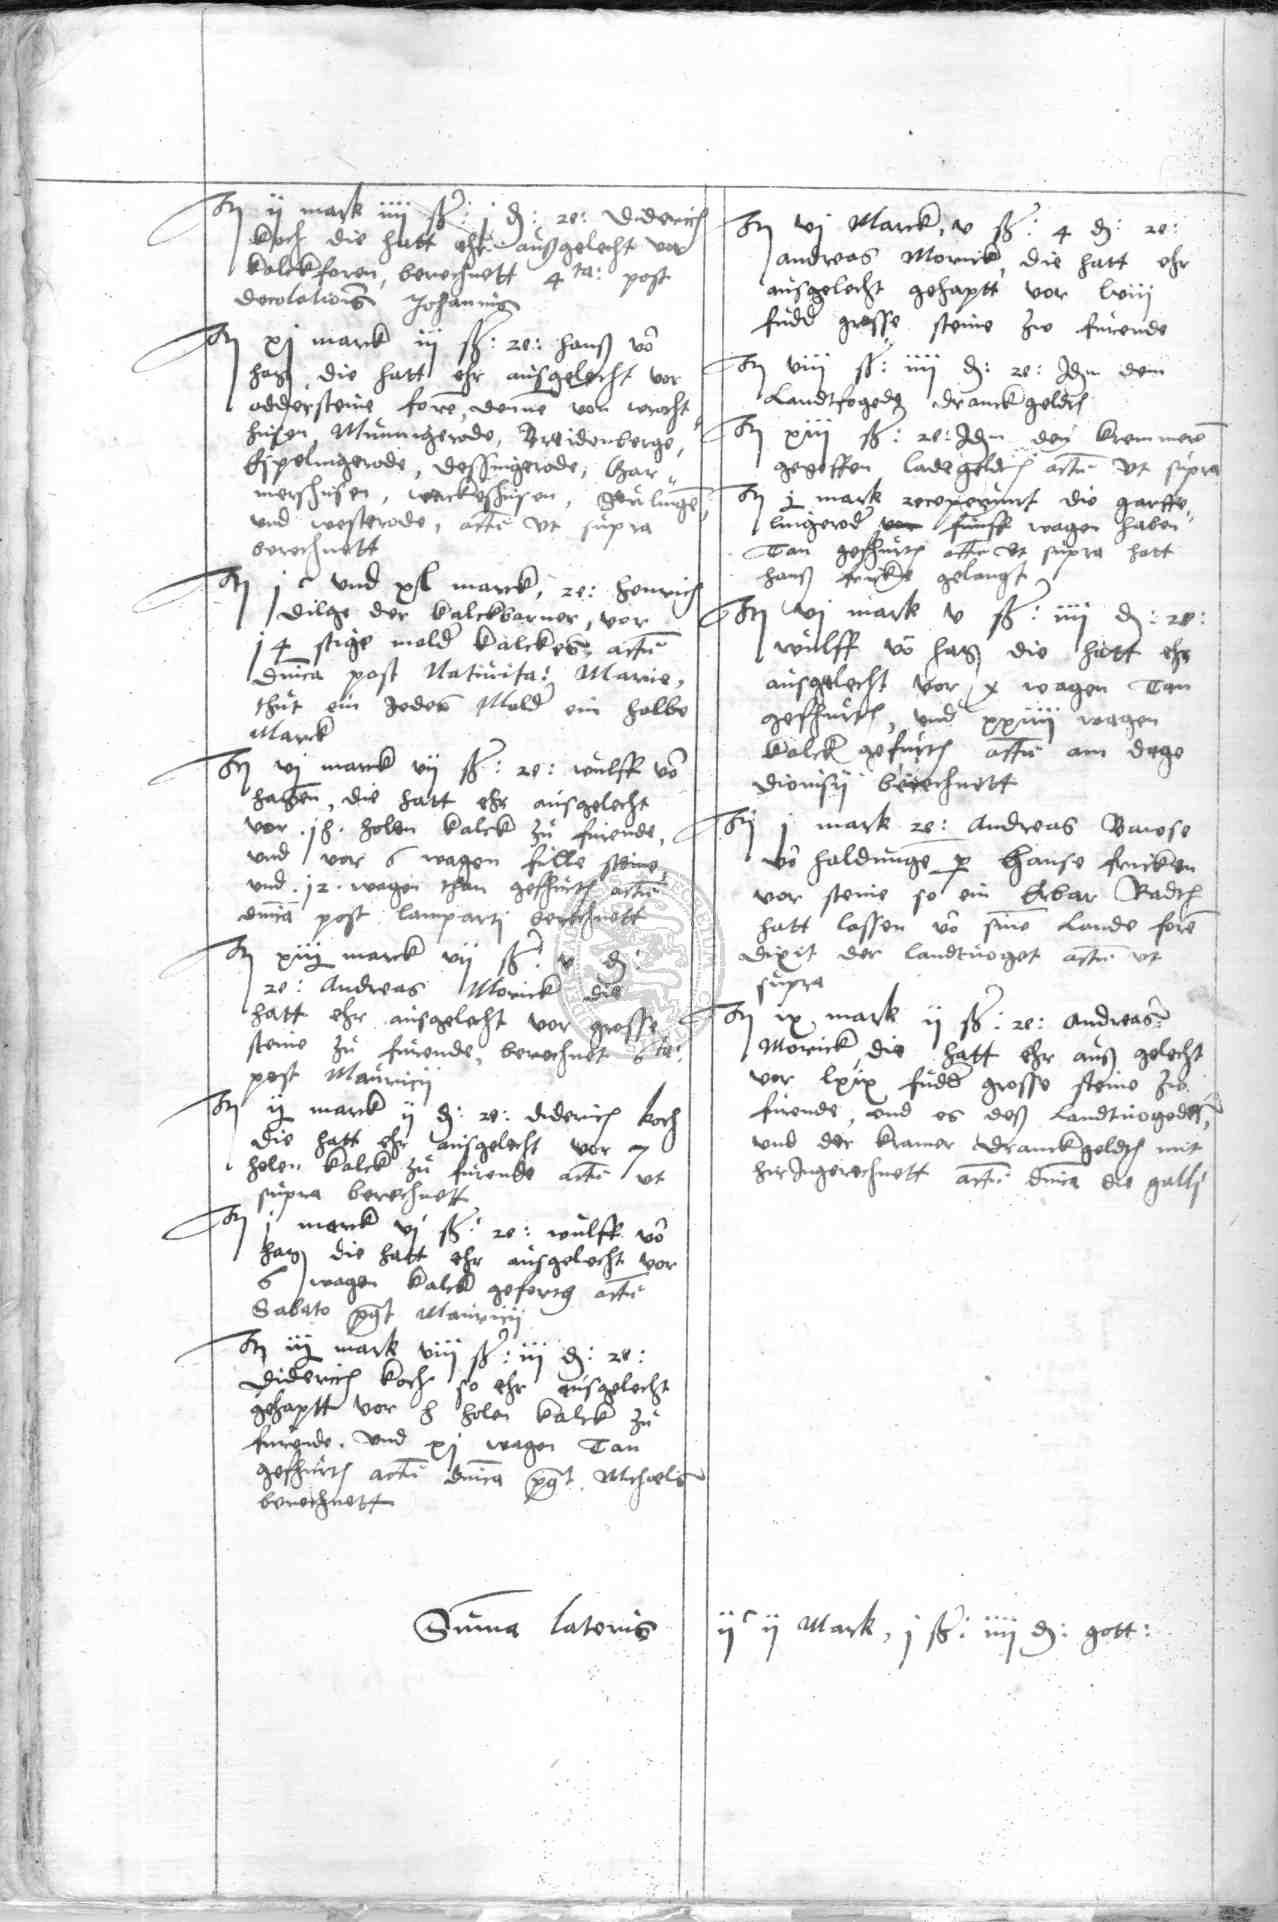 It ij mark iiij ß: j d: re: Diderich
Koch die hatt ehr außgelecht vor
kalckforen, berechnett 4ta: post
decolationis Johannis
It xj marck iij ß: re: hanß vō
hagen, die hatt ehr ausgelecht vor
oddersteine forē, denne von
husen, Mūnnigerode, Breidenberge,
Espelingerode, Dessingerode, Ger„
mershusen, Werckeshusen, Sevlingē,
und Westerode, actū ut supra
berechnett
It jc und marck, re: Henrich
Dilge der kalckbarner, vor
14 stige mold kalckes, actū
dnica post Nativita: Marie,
thut ein Jeder Mold ein halbe
Marck
It vj marck vij ß: re: wulff vō
hagen, die hatt ehr ausgelecht
vor holen kalck zu furende,
und vor 6 wagen fulle steine
und .12. wagen than geffurth actū
dnica post lamparti berechnett
It marck vij ß: v d:
re: Andreas Morick die
hatt ehr ausgelecht vor grosse
steine zu furende, berechnet 6ta:
post Mauricij
It ij marck ij d: re: Diderich Koch
die hatt ehr ausgelecht vor 7
holen kalck zu furende actū ut
supra berechnett
It j marck vj ß: re: wulff vō
hagen die hatt ehr ausgelecht vor
6 wagen kalck gefortt actū
Sabato post Mauricij
It iij mark viij ß: iij d: re:
Diderich Koch so ehr ausgelecht
gehaptt vor holen kalck zu
furende. Und xj wagen Tan
geffurth actū dnica post. Michaelis
berechnett
It vj Marck, v ß: 4 d: re:
Andreas Morick, die hatt ehr
ausgelecht gehaptt vor lviij
fuder grosse steine zw furende
It viij ß: iiij d: re: Idm dem
Landtfogede dranckgeldth
It xiij ß: re: Idm den kremmerē
gegeffen ladegeldth actū ut supra
It j mark die garffe„
lingerod vor funff wagen haben
Tan geffurth actū ut supra hatt
hanß fricke gelangt
It vj mark v ß: iiij d: re:
wulff vō hagen die hatt ehr
ausgelecht vor x wagen Tan
geffurth, und xxiiij wagen
kalck gefurth actū am dage
Dionisij berechnett
It j mark re: Andreas
vō haldunge p hanse fricken
vor steine so ein Erbar Radth
hatt lassen vō sine Lande forē
dixit der landtvoget actū ut
supra
It ix mark ij ß: re: Andreas
Morick die hatt ehr auß gelecht
vor lxix fuder grosse steine zw
furende, und es deß Landtvogedes,
und der kramer dranckgeldth mit
hir Ingerechnett actū dnica die galli
Suma lateris ijc ij Mark, j ß: iiij d: gott: